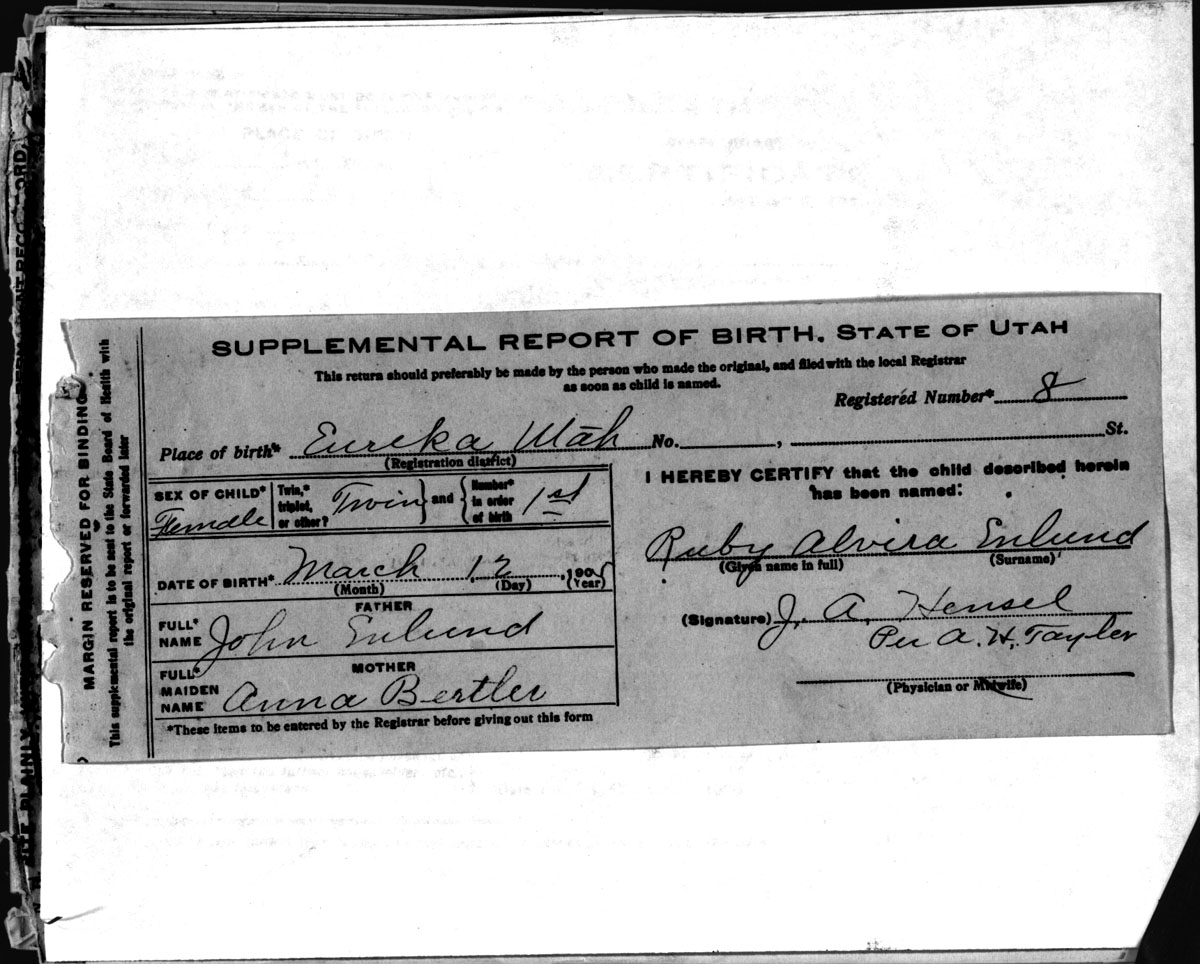 SUPPLEMENTAL REPORT OF BIRTH. STATE OF UTAH
This return should preferably be made by the person who made the original, and filed with the local Registrar
as soon as child is named.
Registered Number* 8
Place of birth* Eureka Utah No. , St.
(Registration district)
SEX OF CHILD* Female
Twin,* triplet, or other? Twin and Number* in order of birth 1st
DATE OF BIRTH* March 12, 190
(Month) (Day) (Year)
FATHER
FULL* NAME John Enlund
MOTHER
FULL* MAIDEN NAME Anna Bertler
*These items to be entered by the Registrar before giving out this form
I HEREBY CERTIFY that the child described herein
has been named:
Ruby Alvira Enlund
(Given name in full) (Surname)
(Signature) J. A. Hensel
Per A. H. Tayler
(Physician or Midwife)
MARGIN RESERVED FOR BINDING
This supplemental report is to be sent to the State Board of Health with
the original report or forwarded later